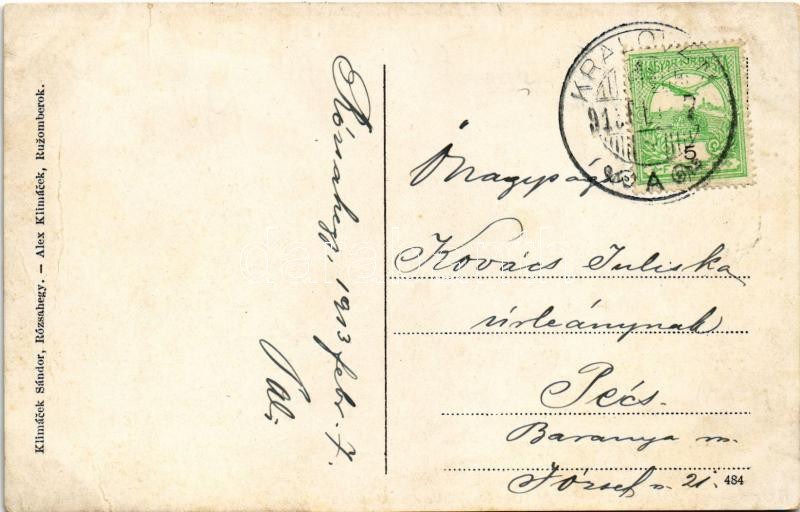 Klimáček Sándor, Rózsahegy. — Alex Klimáček, Ružomberok.
Rózsahegy, 1913 febr. 7.
Pali
KRALOV
Őnagysága
Kovács Juliska
úrleánynak
Pécs.
Baranya m.
József u. 21.
484
5